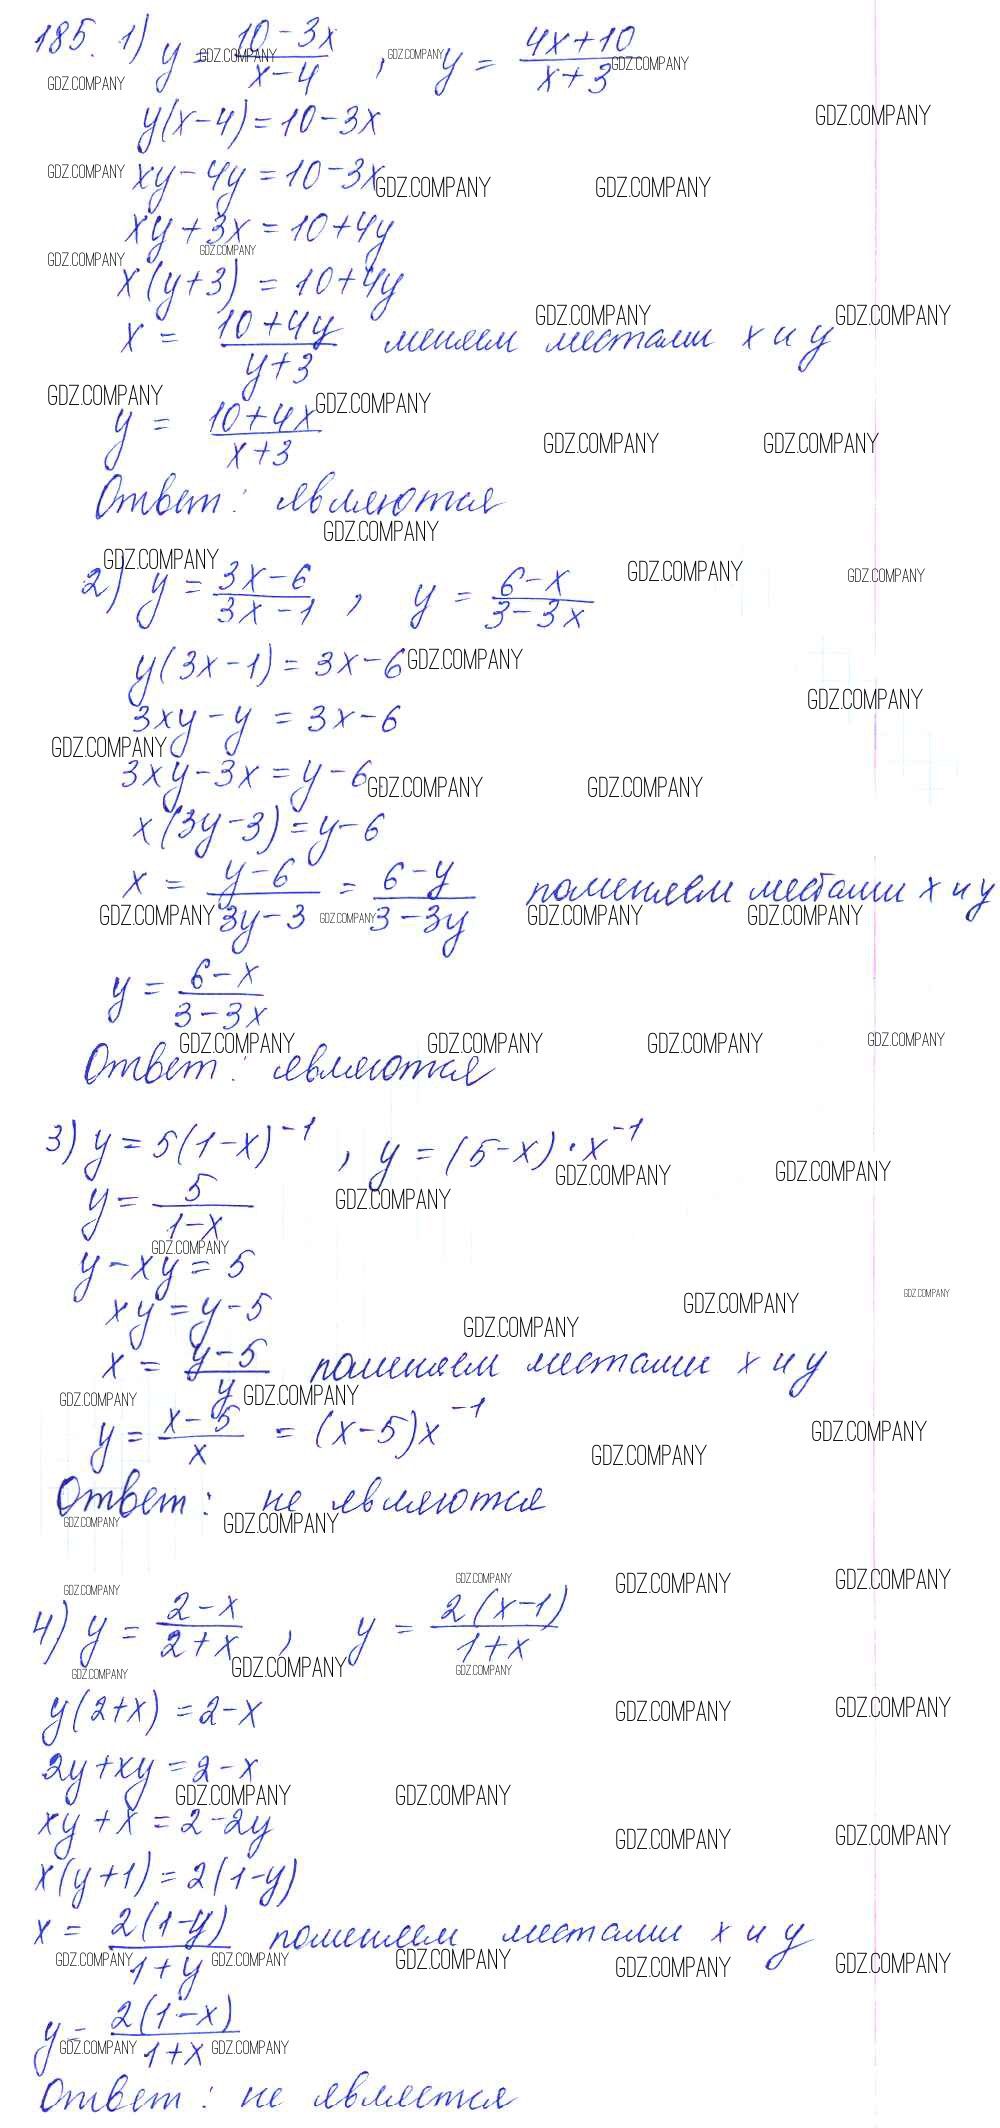 185. 1) y = (10-3x)/(x-4) , y = (4x+10)/(x+3)
y(x-4)=10-3x
xy-4y=10-3x
xy+3x=10+4y
x(y+3) = 10+4y
x = (10+4y)/(y+3) меняем местами x и y
y = (10+4x)/(x+3)
Ответ: являются
2) y = (3x-6)/(3x-1) , y = (6-x)/(3-3x)
y(3x-1)=3x-6
3xy-y=3x-6
3xy-3x=y-6
x(3y-3)=y-6
x = (y-6)/(3y-3) = (6-y)/(3-3y) поменяем местами x и y
y = (6-x)/(3-3x)
Ответ: являются
3) y=5(1-x)⁻¹ , y=(5-x)·x⁻¹
y = 5/(1-x)
y-xy=5
xy=y-5
x = (y-5)/y поменяем местами x и y
y = (x-5)/x = (x-5)x⁻¹
Ответ: не являются
4) y = (2-x)/(2+x) , y = 2(x-1)/(1+x)
y(2+x)=2-x
2y+xy=2-x
xy+x=2-2y
x(y+1)=2(1-y)
x = 2(1-y)/(1+y) поменяем местами x и y
y = 2(1-x)/(1+x)
Ответ: не является
GDZ.COMPANY